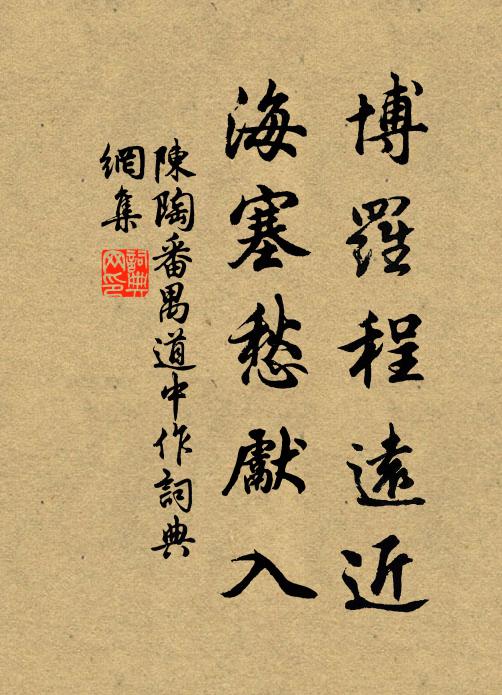 博羅程遠近
海塞愁獻入
陳陶番禺道中作詞典
網集
詞典
网印